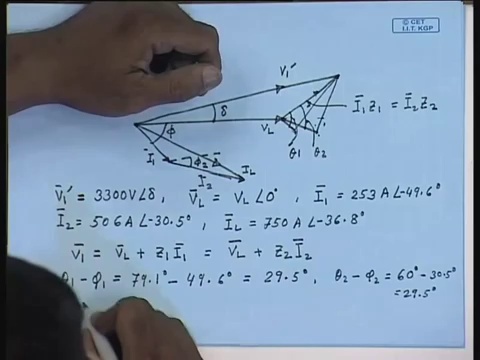 © CET
I.I.T. KGP
V₁′
δ
Ī₁Z₁ = Ī₂Z₂
V_L
ϕ
θ₁ θ₂
Ī₁
ϕ₂
I₂
I_L
V̄₁′ = 3300V∠δ, V̄_L = V_L∠0°, Ī₁ = 253A∠-49.6°
Ī₂ = 506A∠-30.5°, Ī_L = 750A∠-36.8°
V̄₁ = V̄_L + Z₁Ī₁ = V̄_L + Z₂Ī₂
θ₁ - φ₁ = 79.1° - 49.6° = 29.5°, θ₂ - φ₂ = 60° - 30.5°
= 29.5°